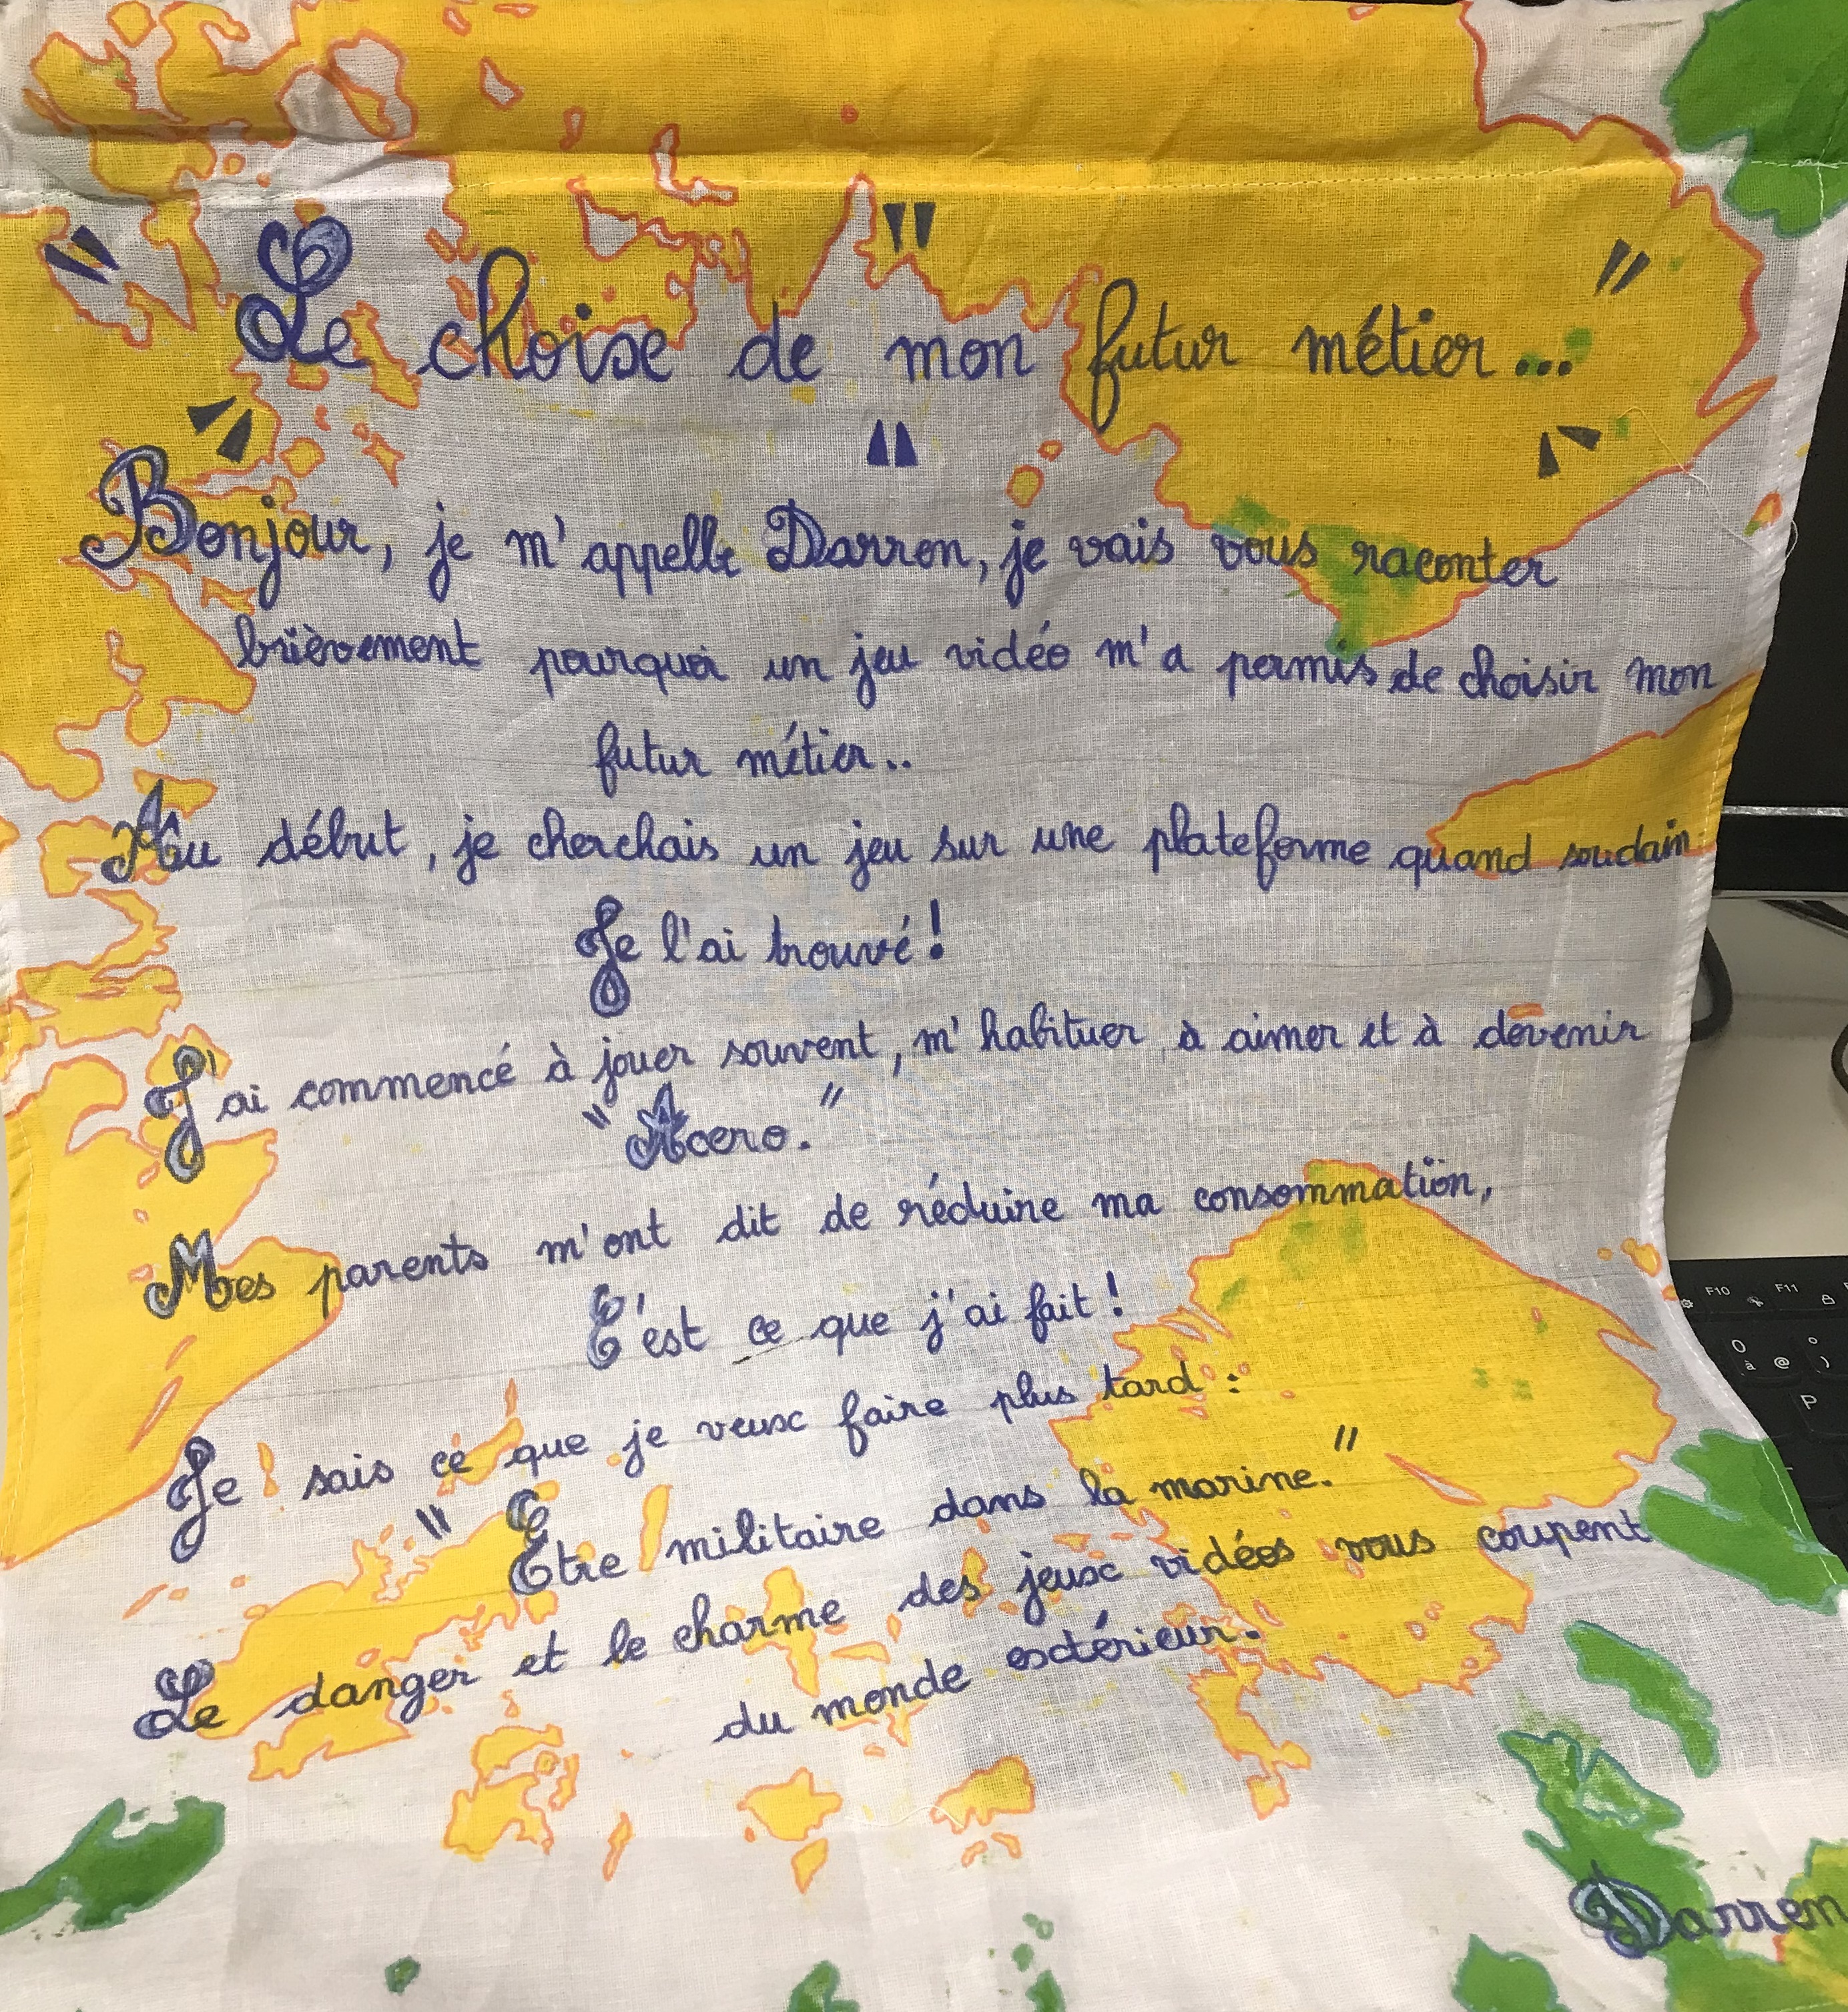 " Le choixe de mon futur métier... "
Bonjour, je m'appelle Darren, je vais vous raconter
brièvement pourquoi un jeu vidéo m'a permis de choisir mon
futur métier..
Au début, je cherchais un jeu sur une plateforme quand soudain
Je l'ai trouvé !
J'ai commencé à jouer souvent, m'habituer à aimer et à devenir
"Accro."
Mes parents m'ont dit de réduire ma consommation,
C'est ce que j'ai fait !
Je sais ce que je veux faire plus tard :
"Etre militaire dans la marine."
Le danger et le charme des jeux vidées vous coupent
du monde extérieur.
Darren
F10 F11
0 à @ ° )
P